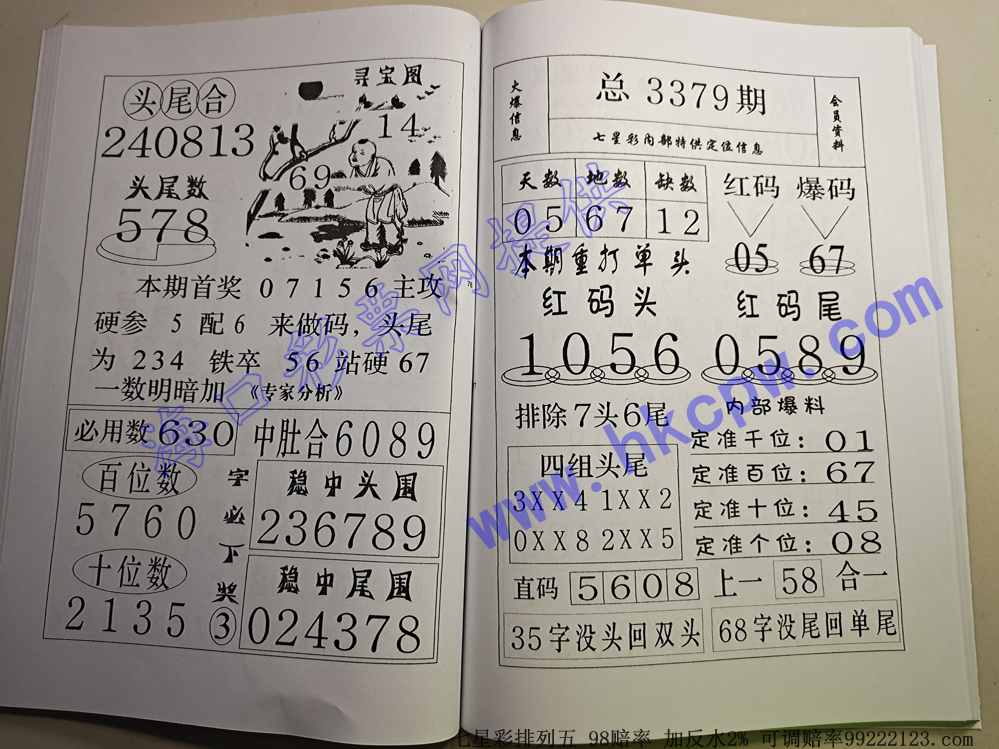 头尾合
240813
头尾数
578
寻宝图
14
69
本期首奖 07156 主攻
硬参 5 配6 来做码，头尾
为 234 铁卒 56 站硬 67
一数明暗加 《专家分析》
必用数 630
中肚合 6089
百位数
5760
十位数
2135
字必下奖③
稳中头围
236789
稳中尾围
024378
火爆信息
总 3379期
七星彩内部特供定位信息
会员资料
天数 地数 缺数
05 67 12
红码 爆码
05 67
本期重打单头
红码头 红码尾
1056 0589
排除7头6尾
内部爆料
定准千位：01
定准百位：67
定准十位：45
定准个位：08
四组头尾
3XX4 1XX2
0XX8 2XX5
直码 5608 上一 58 合一
35字没头回双头
68字没尾回单尾
海口彩票网提供
www.hkcpw.com
七星彩排列五 98赔率 加反水2% 可调赔率99222123.com